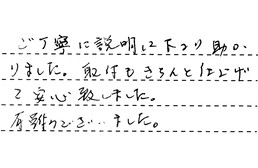 ご丁寧に説明して下さり助か
りました。取付もきちんと仕上げ
て安心致しました。
有難うございました。